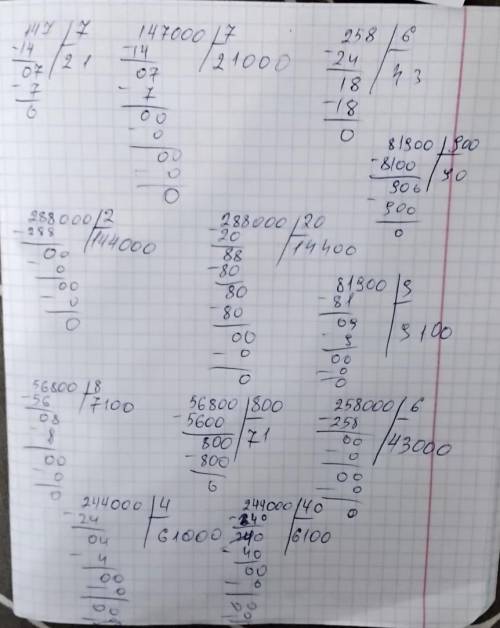 147 7
-14 21
07
- 7
0
147000 7
-14 21000
07
- 7
00
- 0
00
- 0
0
258 6
-24 43
18
-18
0
81900 900
-8100 90
900
- 900
0
288000 2
-288 144000
00
- 0
00
- 0
0
288000 20
-20 14400
88
-80
80
-80
00
- 0
0
81900 9
-81 9100
09
- 9
00
- 0
0
56800 8
-56 7100
08
- 8
00
- 0
0
56800 800
-5600 71
800
-800
0
258000 6
-258 43000
00
- 0
00
- 0
0
244000 4
-24 61000
04
- 4
00
- 0
00
244000 40
-240 6100
40
- 40
00
- 0
00